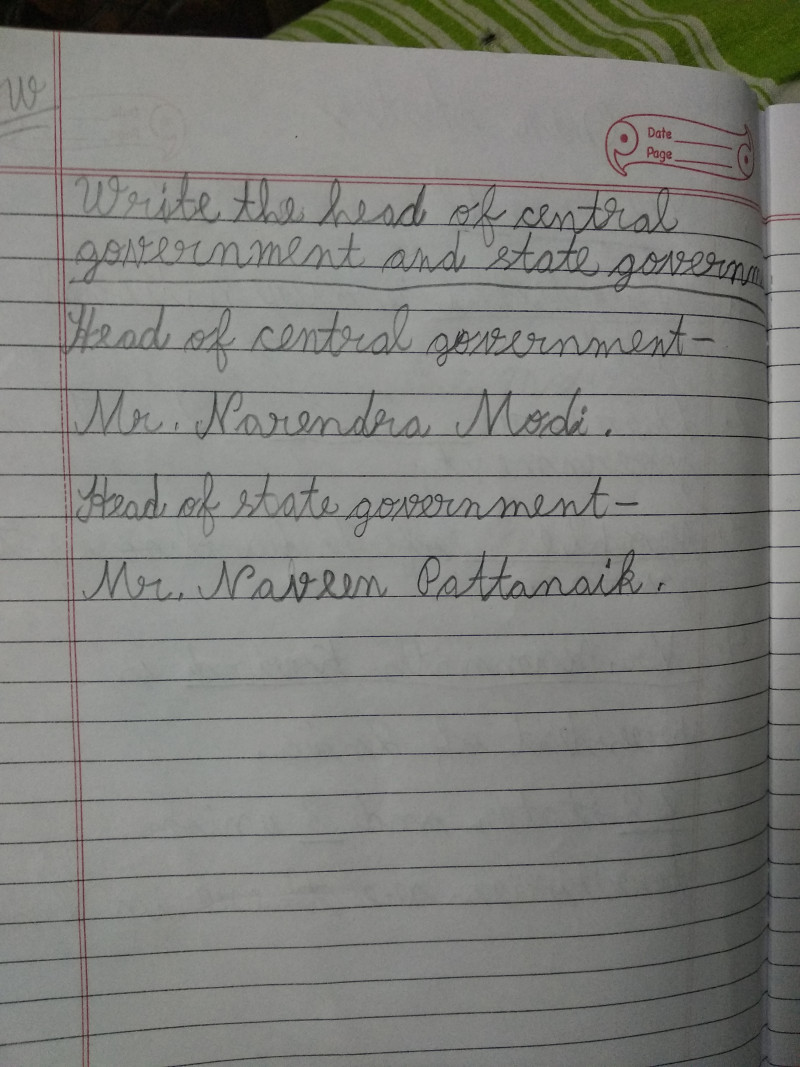 W
Date
Page
Write the head of central
government and state governm
Head of central government-
Mr. Narendra Modi.
Head of state government-
Mr. Naveen Pattanaik.